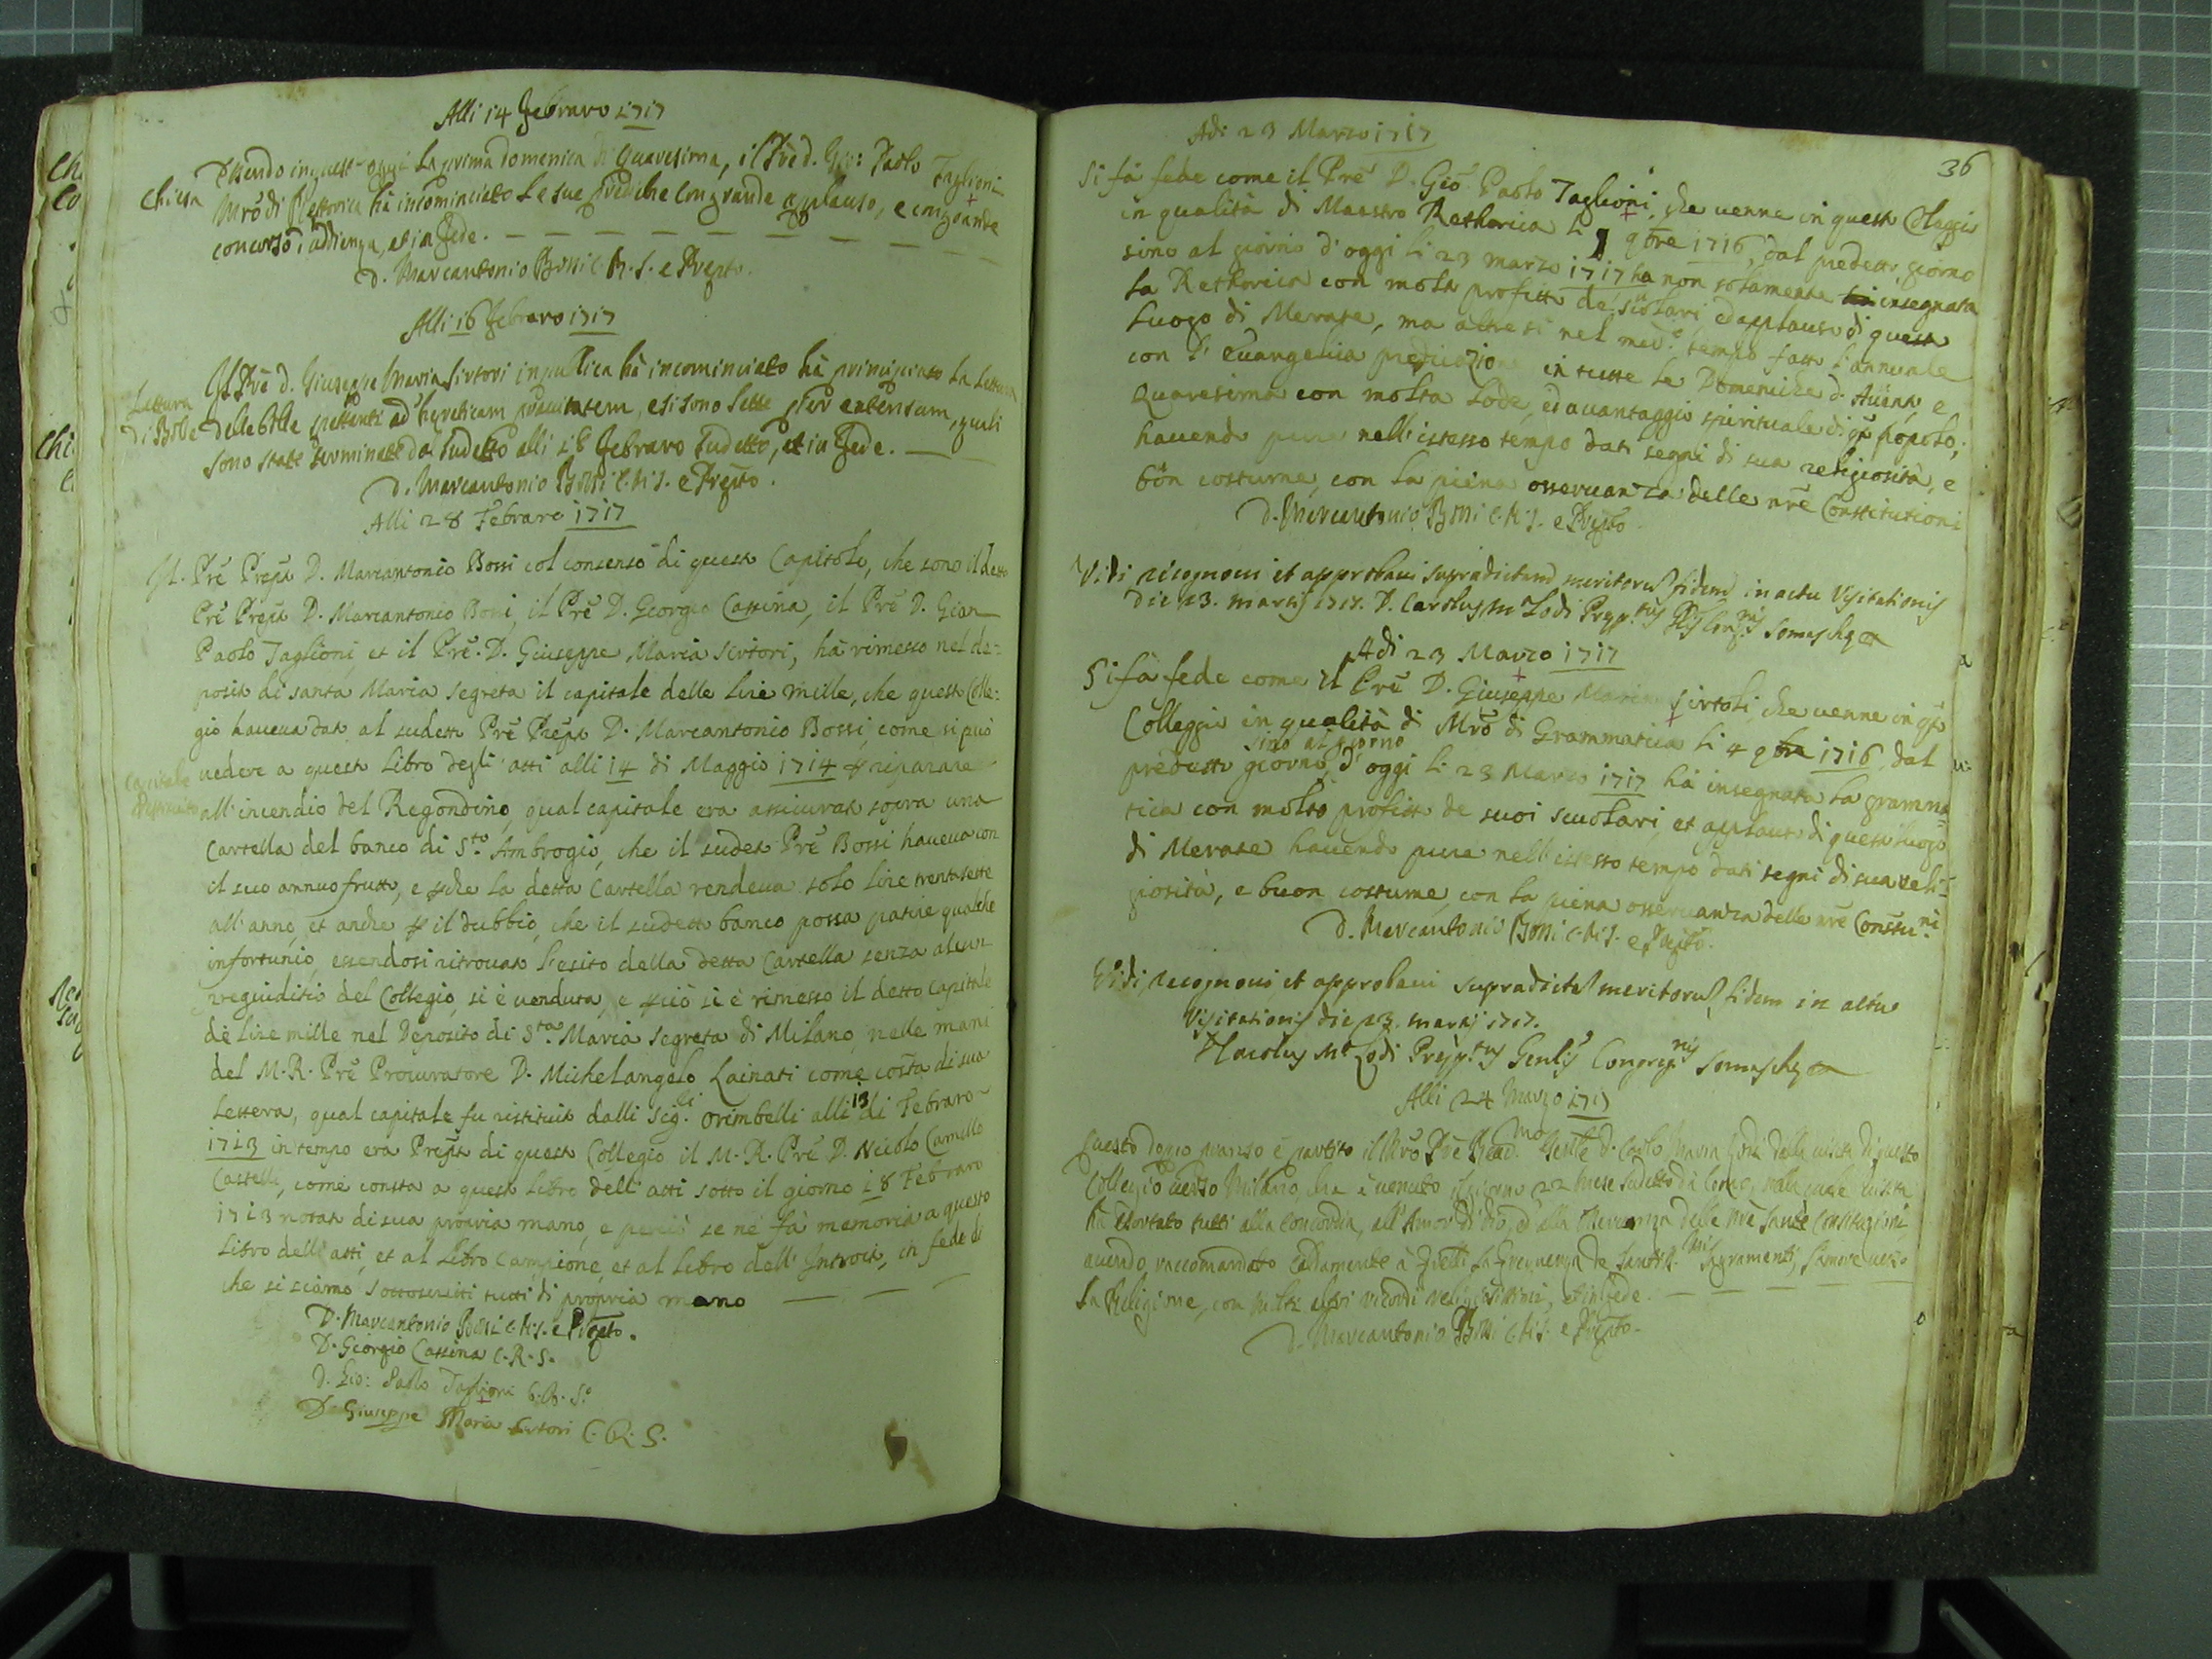 Alli 14 Febraro 1717
Chiesa
Essendo in quest oggi la prima Domenica di Quaresima, il Prē d. Gio: Paolo Taglioni
Mrō di Rettorica hà incominciato le sue prediche con grande applauso, e con grande
concorso, et in fede.
D. Marcantonio Bossi C.R.S. e Prepto.
Alli 16 Febraro 1717
Lettura di Bolle
Il Prē d. Giuseppe Maria Sirtori in publica hà incominciato hà principiato la Lettura
delle Bolle spettanti ad hereticam pravitatem, e si sono lette per extensum, quali
sono state terminate da sudetto alli 18 Febraro sudetto, et in fede.
D. Marcantonio Bossi C.R.S. e Prepto.
Alli 28 Febraro 1717
Il Prē Prepto D. Marcantonio Bossi col consenso di questo Capitolo, che sono il detto
Prē Prepto D. Marcantonio Bossi, il Prē D. Georgio Cassina, il Prē D. Gian
Paolo Taglioni, et il Prē D. Giuseppe Maria Sirtori, hà rimesso nel de=
posito di santa Maria Segreta il capitale delle lire mille, che questo Colle=
gio haveva dato al sudetto Prē Prepto D. Marcantonio Bossi, come si può
vedere a questo Libro degli atti alli 14 di Maggio 1714 p riparare
Capitale
all'incendio del Regondino, qual capitale era assicurato sopra una
Cartella del banco di Sto. Ambrogio, che il sudeto Prē Bossi haveva con
il suo annuo frutto, e pche la detta Cartella rendeva solo lire trentasette
all'anno, et anche p il dubbio, che il sudetto banco possa patire qualche
infortunio, essendosi ritrovato l'esito della detta Cartella senza alcun
pregiuditio del Collegio, si è venduta, e pciò si è rimesso il detto capitale
de lire mille nel Deposito di Sta. Maria Segreta di Milano, nelle mani
del M.R. Prē Procuratore D. Michelangelo Lainati come costa di sua
Lettera, qual capitale fu restituito dalli Sig.ri Orimbelli alli 13 di Febraro
1713 in tempo era Prepto di questo Collegio il M.R. Prē D. Nicolò Camillo
Castelli, come consta a questo Libro dell'atti sotto il giorno 18 Febraro
1713 notato di sua propria mano, e perciò se ne fà memoria a questo
Libro dell'atti, et al Libro Campione, et al Libro dell'Introito, in fede di
che si siamo sottoscritti tutti di propria mano
D. Marcantonio Bossi C.R.S. e Prepto.
D. Giorgio Cassina C.R.S.
D. Gio: Paolo Taglioni C.R.S.
D. Giuseppe Maria Sirtori C.R.S.
36
Adi 23 Marzo 1717
Si fà fede come il Prē D. Gio. Paolo Taglioni, che venne in questo Collegio
in qualità di Maestro Rethorica li 9bre 1716, dal predetto giorno
sino al giorno d'oggi li 23 marzo 1717 ha non solamente insegnata
la Rethorica con molto profitto de' scolari ed applauso di questo
Luogo di Merate, ma altresì nel med.º tempo fatto l'annuale
con l'Evangelica predicazione in tutte le Domeniche d'Avento e
Quaresima con molta lode, ed avantaggio spirituale di qto popolo;
havendo pure nell'istesso tempo dati segni di sua religiosità, e
bon costume, con la piena osservanza delle nrē Constitutioni
D. Marcantonio Bossi C.R.S. e Prepto.
Vidi recognovi et approbavi supradictam meritorum fidem in actu Visitationis
die 23. martij 1717. D. Carolus M. Lodi Prep.tus Glis Cong.nis Somaschę
Adi 23 Marzo 1717
Si fà fede come il Prē D. Giuseppe Maria Sirtori che venne in qto
Colleggio in qualità di Mrō di Grammatica li 4 9bre 1716, dal
predetto giorno sino al giorno d'oggi li 23 Marzo 1717 hà insegnata la gramma=
tica con molto profitto de suoi scuolari, et applauso di questo luogo
di Merate havendo pure nell'istesso tempo dati segni di sua reli=
giosità, e buon costume, con la piena osservanza delle nrē Constit.ni
D. Marcantonio Bossi C.R.S. e Prepto.
Vidi, recognovi, et approbavi supradictā meritorum fidem in actu
Visitationis die 23. martij 1717.
D. Carolus Mª Lodi Prep.tus Genlis Congreg.nis Somaschę
Alli 24 Marzo 1717
Questo doppo pranso è partito il Nrō Prē Rev.mo Genle D. Carlo Maria Lodi dalla visita di questo
Collegio verso Milano, che è venuto il giorno 22 mese sudetto da Como, nella quale visita
hà esortato tutti alla concordia, all'Amor di Dio, ed alla osservanza delle nrē sante Constituzioni,
avendo raccomandato caldamente à quelli la frequenza de Santiss.mi Sagramenti, l'amore verso
la Religione, con molti altri ricordi religiosissimi, et in fede.
D. Marcantonio Bossi C.R.S. e Prepto.